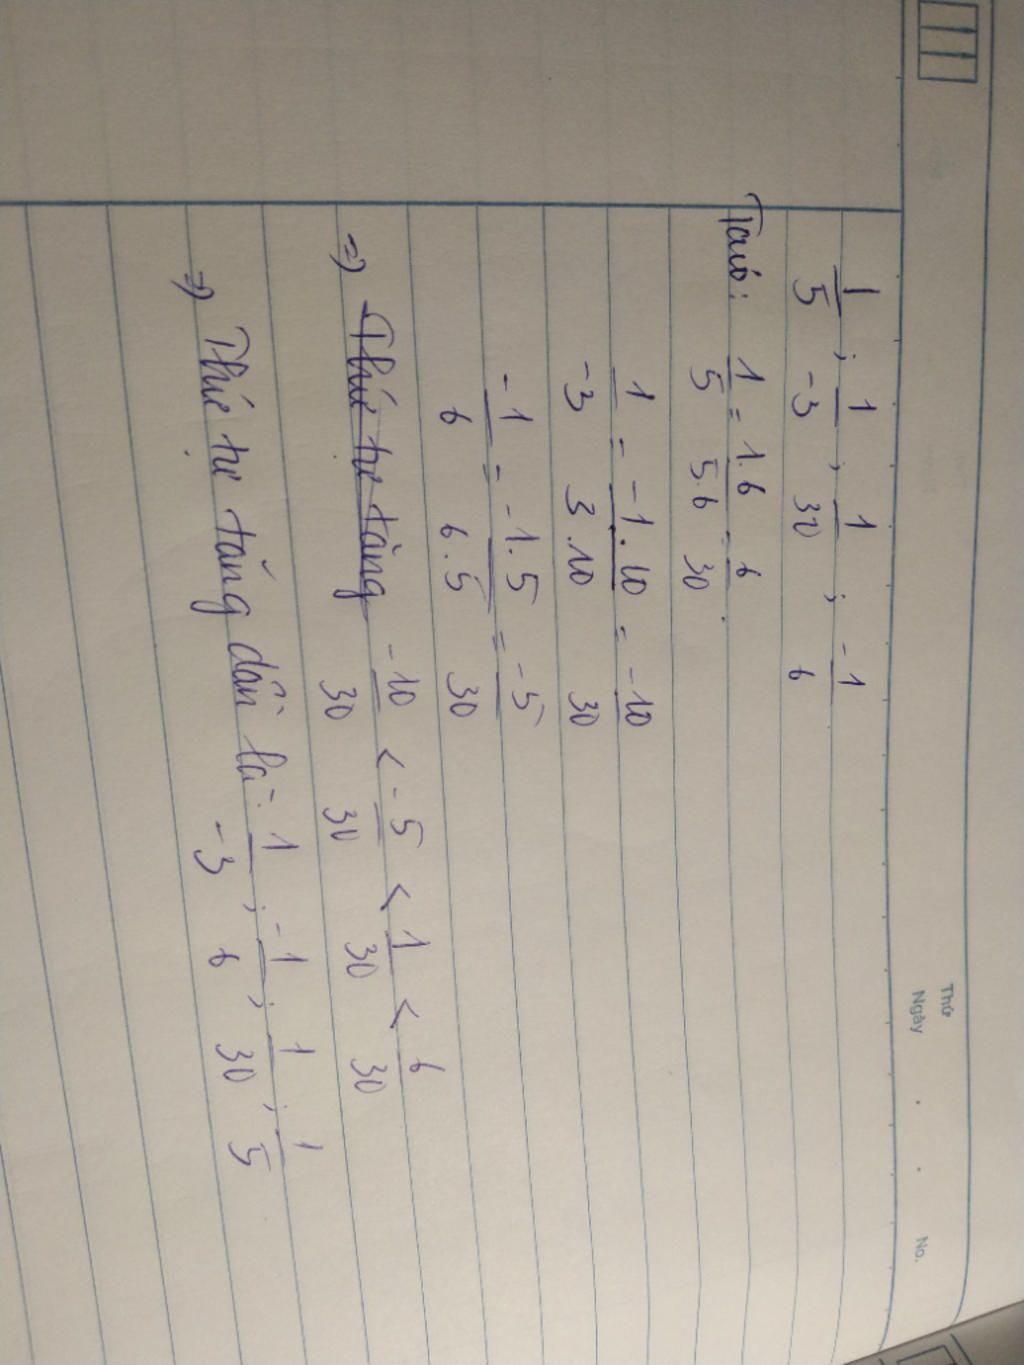 Thứ
Ngày . . No.
1/5 ; 1/-3 ; 1/30 ; -1/6
Ta có: 1/5 = 1.6/5.6 = 6/30 .
1/-3 = -1.10/3.10 = -10/30
-1/6 = -1.5/6.5 = -5/30
=> Thứ tự tăng -10/30 < -5/30 < 1/30 < 6/30
=> Thứ tự tăng dần là: 1/-3 ; -1/6 ; 1/30 ; 1/5